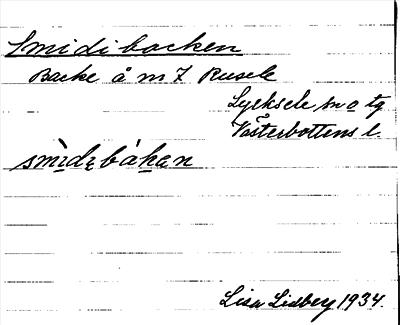 Smidibacken
Backe å m 7 Rusele
Lycksele sn o tg
Västerbottens l.
smìdibàkan
Lisa Lidberg 1934.